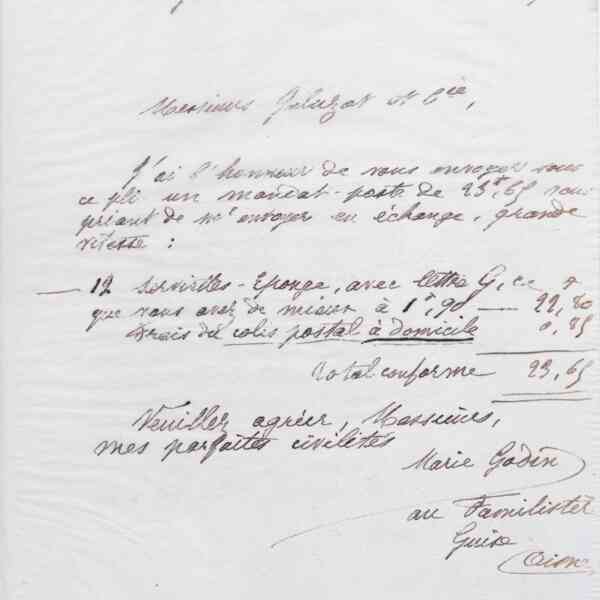 Messieurs et Cie,
J'ai l'honneur de vous envoyer sous
ce pli un mandat-poste de 23f,65 vous
priant de m'envoyer en échange, grande
vitesse :
— 12 serviettes-Eponge, avec lettre G, ce
que vous avez de mieux à 1f,90 — 22,80
Frais du colis postal à domicile 0,85
Total conforme 23,65
Veuillez agréer, Messieurs,
mes parfaites civilités
Marie Godin
au Familistère
Guise
(Aisne)